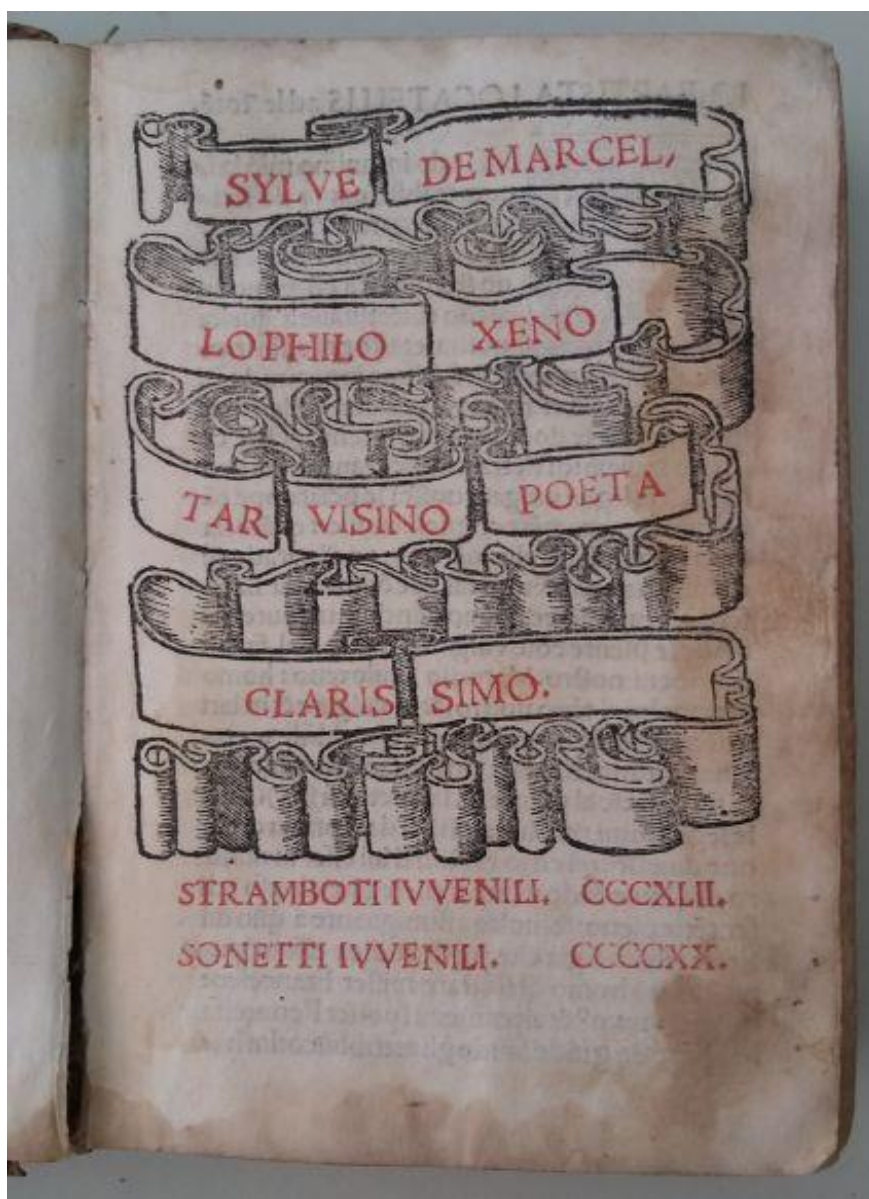 SYLVE DE MARCEL,
LOPHILO XENO
TAR VISINO POETA
CLARIS SIMO.
STRAMBOTI IVVENILI. CCCXLII.
SONETTI IVVENILI. CCCCXX.